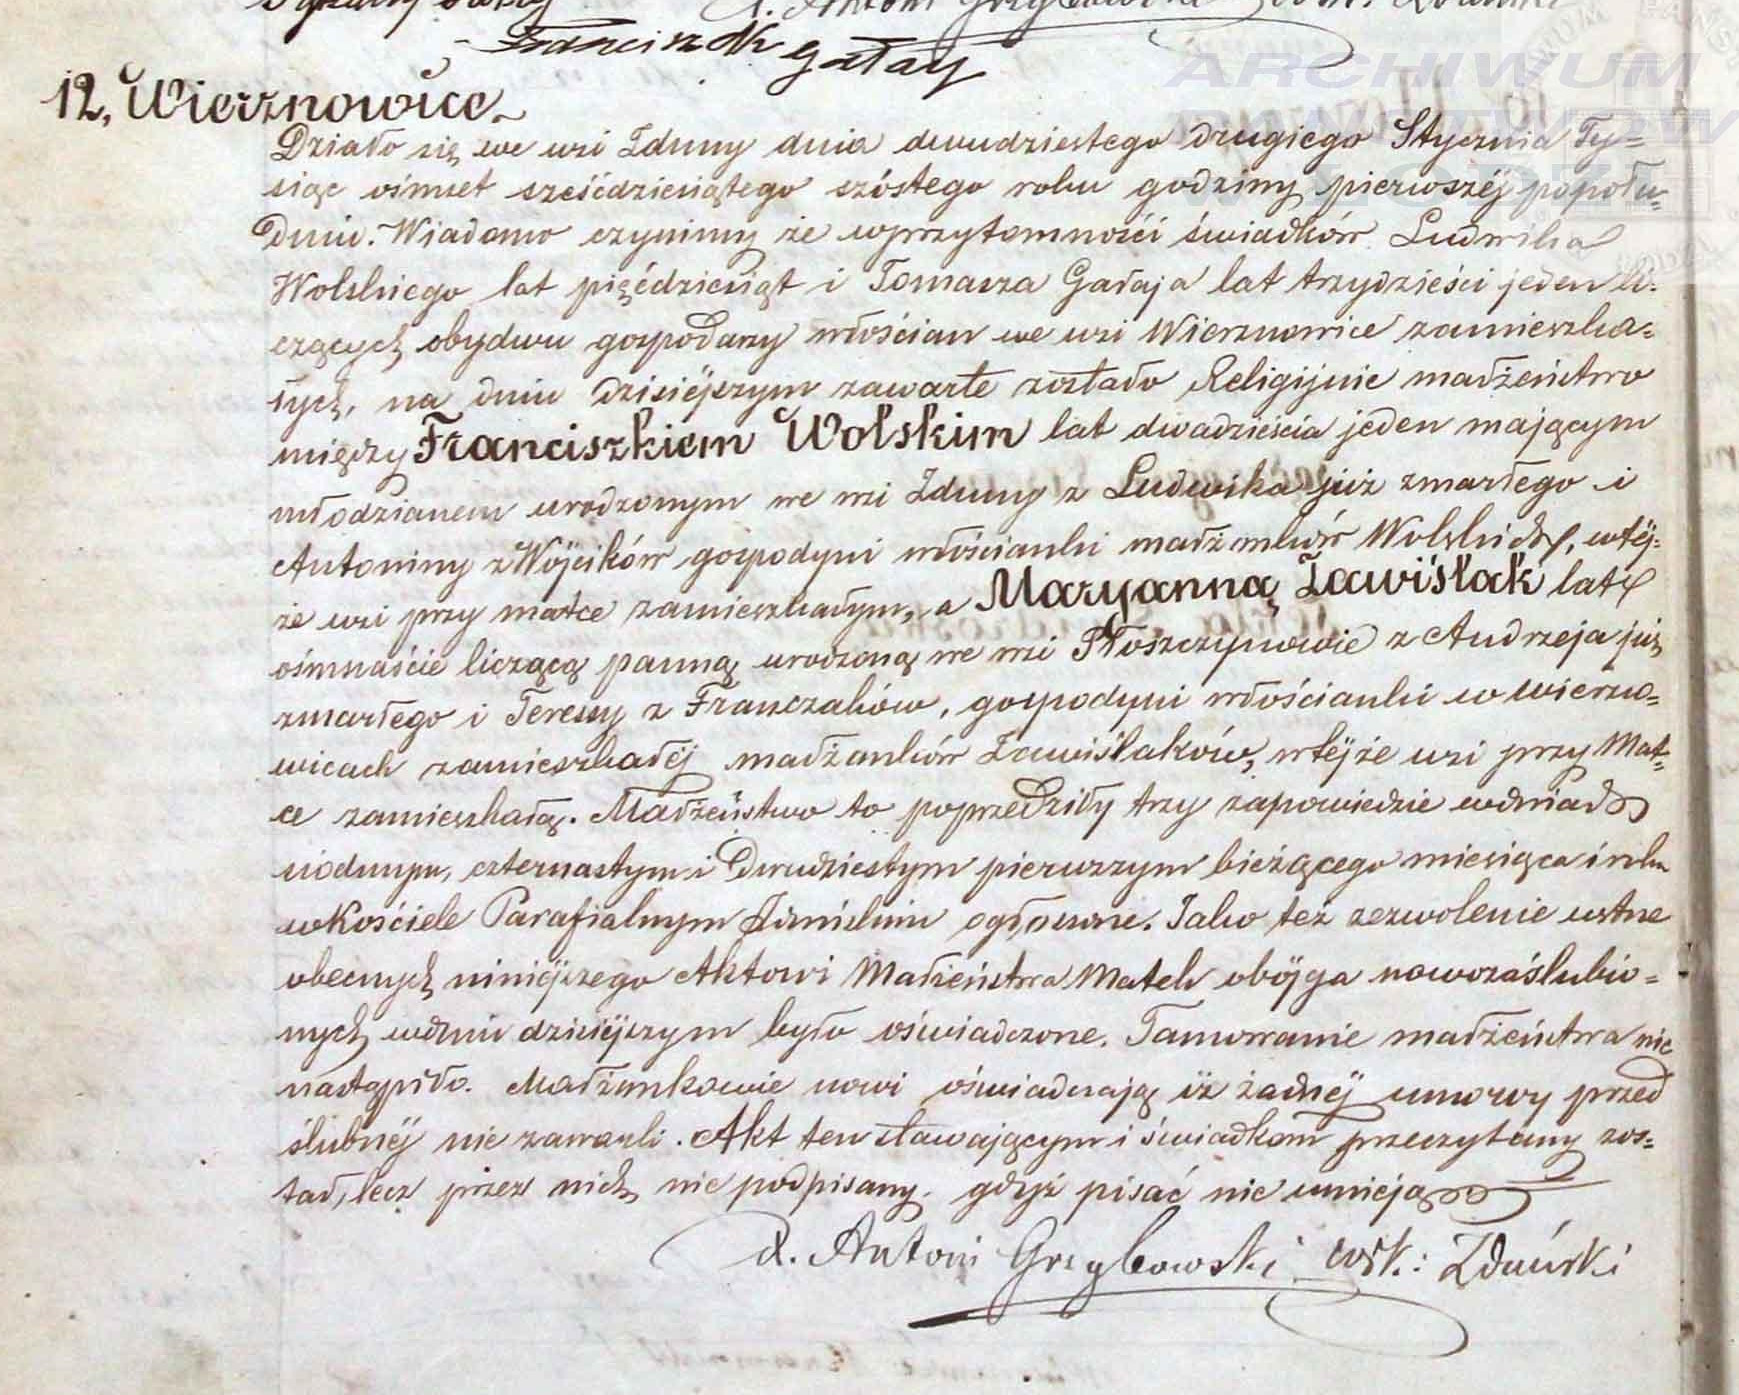 Franciszek Gałaj
12, Wierznowice.
Działo się we wsi Zduny dnia dwudziestego drugiego Stycznia Ty=
siąc ośmset sześćdziesiątego szóstego roku godziny pierwszéj popołu=
dniu. Wiadomo czynimy że wprzytomności świadków Ludwika
Wolskiego lat pięćdziesiąt i Tomasza Gałaja lat trzydzieści jeden li=
czących obydwu gospodarzy włościan we wsi Wierznowice zamieszka=
łych, na dniu dzisiéjszym zawarte zostało Religijnie małżeństwo
między Franciszkiem Wolskim lat dwadzieścia jeden mającym
młodzianem urodzonym we wsi Zduny z Ludwika już zmarłego i
Antoniny z Wójcików gospodyni włościanki małżonków Wolskich, wtéj=
że wsi przy matce zamieszkałym, a Maryanną Zawiślak lat
ośmnaście liczącą panną urodzoną we wsi Płoszczynowie z Andrzeja już
zmarłego i Teressy z Franczaków, gospodyni włościanki w Wierzno=
wicach zamieszkałéj małżonków Zawiślaków, wtéjże wsi przy Mat=
ce zamieszkałą. Małżeństwo to poprzedziły trzy zapowiedzie wdniach
siódmym, czternastym i Dwudziestym pierwszym bieżącego miesiąca i roku
wkościele Parafialnym Zduńskim ogłoszone. Jako też zezwolenie ustne
obecnych niniéjszego Aktowi Małżeństwa Matek obójga nowozaślubio=
nych wdniu dzisiéjszym było oświadczone. Tamowanie małżeństwa nie
nastąpiło. Małżonkowie nowi oświadczają iż żadnéj umowy przed
ślubnéj nie zawarli. Akt ten stawającym i świadkom przeczytany zos=
tał, lecz przez nich nie podpisany, gdyż pisać nie umieją
X. Antoni Grzybowski wik.: Zduński
ARCHIWUM
PAŃSTWOWE
W ŁODZI